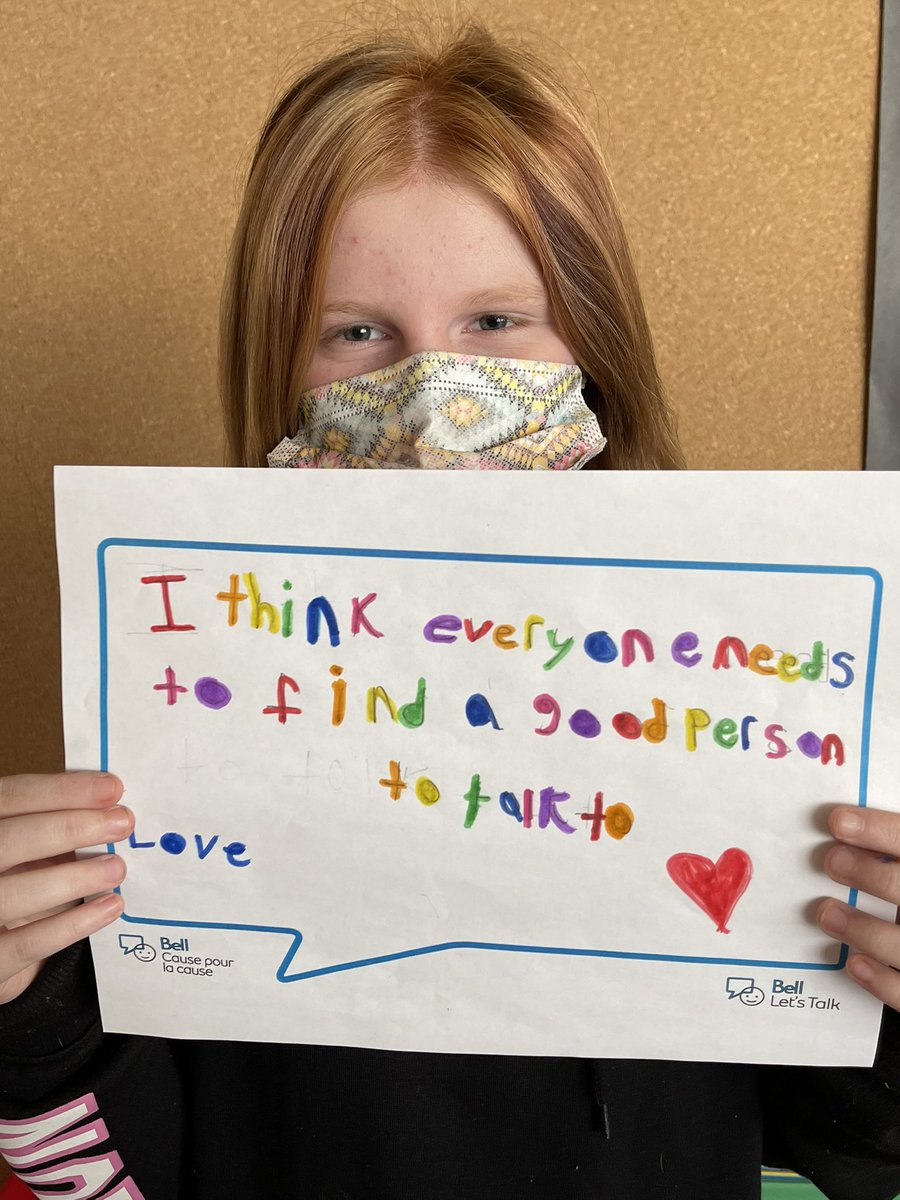 I think everyone needs
to find a good person
to talk to
Love
Bell
Cause pour
la cause
Bell
Let's Talk